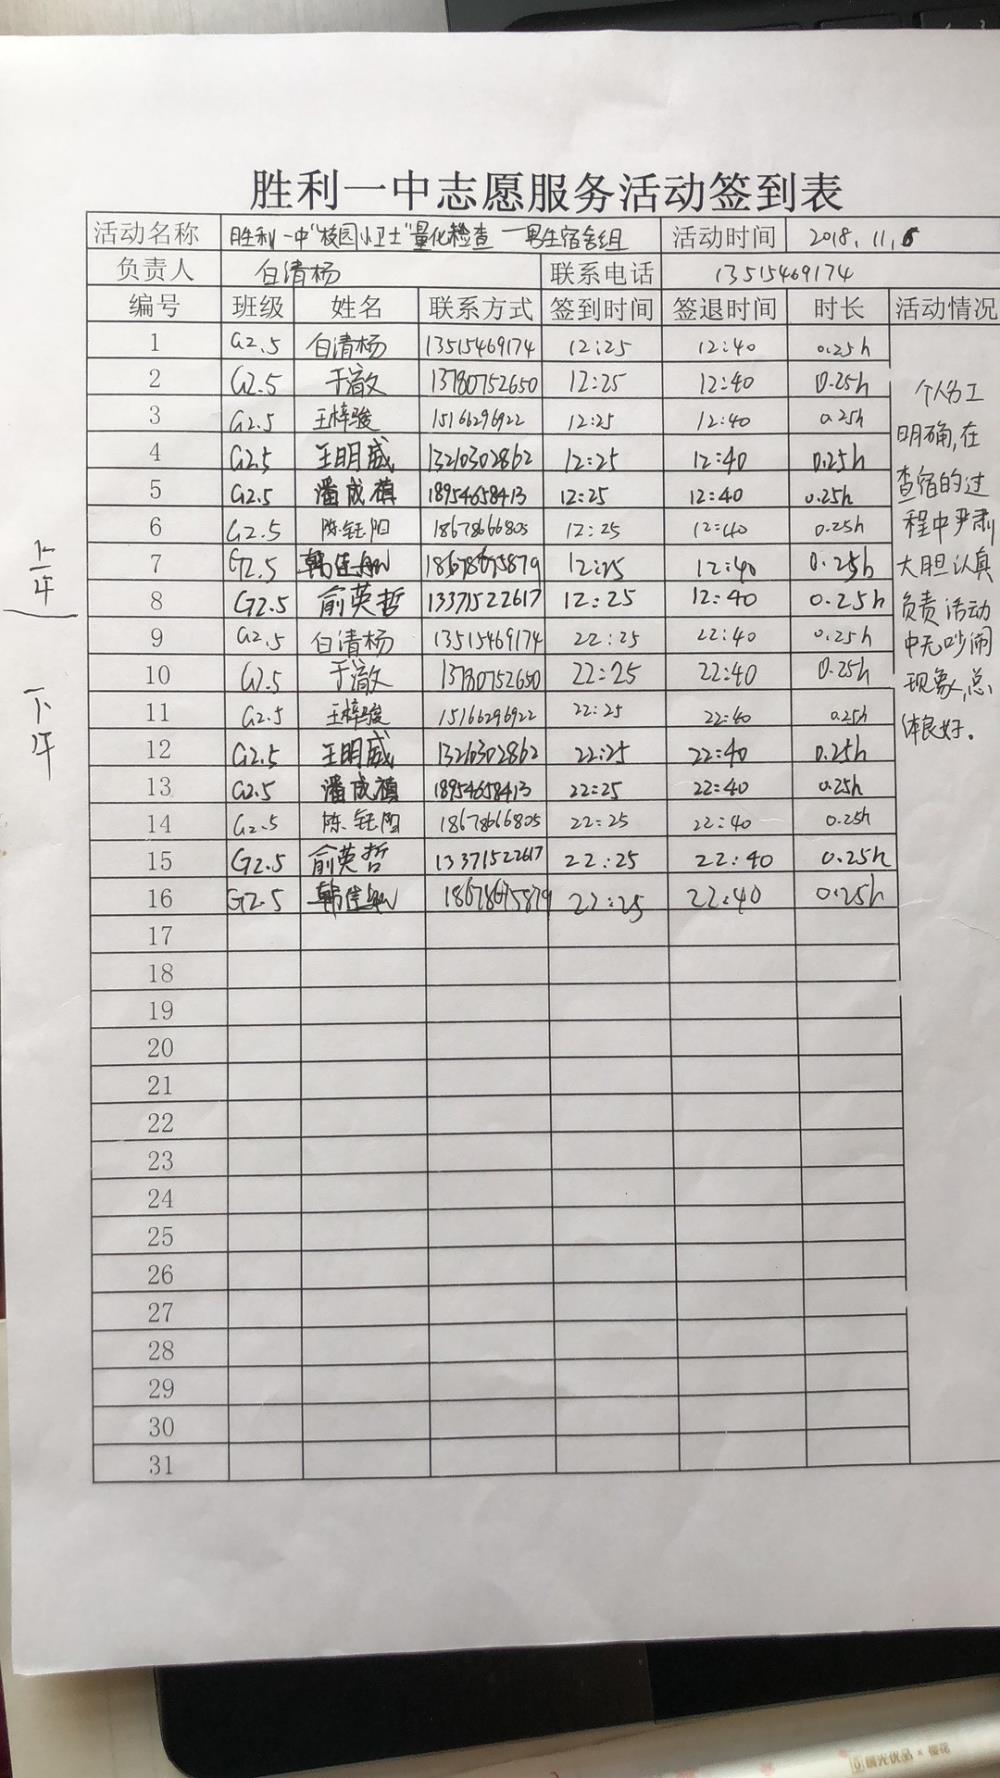 胜利一中志愿服务活动签到表
活动名称 胜利一中"校园小卫士"量化检查 — 男生宿舍组 活动时间 2018.11.6
负责人 白清杨 联系电话 13515469174
编号 班级 姓名 联系方式 签到时间 签退时间 时长 活动情况
1 G2.5 白清杨 13515469174 12:25 12:40 0.25h
2 G2.5 于澈 13780752650 12:25 12:40 0.25h
3 G2.5 王梓骏 15166296922 12:25 12:40 0.25h
4 G2.5 王明威 13210302862 12:25 12:40 0.25h
5 G2.5 潘成禛 18954658413 12:25 12:40 0.25h
6 G2.5 陈钰阳 18678666805 12:25 12:40 0.25h
7 G2.5 韩佳 18678675879 12:25 12:40 0.25h
8 G2.5 俞英哲 13371522617 12:25 12:40 0.25h
9 G2.5 白清杨 13515469174 22:25 22:40 0.25h
10 G2.5 于澈 13780752650 22:25 22:40 0.25h
11 G2.5 王梓骏 15166296922 22:25 22:40 0.25h
12 G2.5 王明威 13210302862 22:25 22:40 0.25h
13 G2.5 潘成禛 18954658413 22:25 22:40 0.25h
14 G2.5 陈钰阳 18678666805 22:25 22:40 0.25h
15 G2.5 俞英哲 13371522617 22:25 22:40 0.25h
16 G2.5 韩佳 18678675879 22:25 22:40 0.25h
17
18
19
20
21
22
23
24
25
26
27
28
29
30
31
个人分工
明确,在
查宿的过
程中严肃
大胆认真
负责活动
中无吵闹
现象,总
体良好。
上午
下午
晨光优品 × 樱花